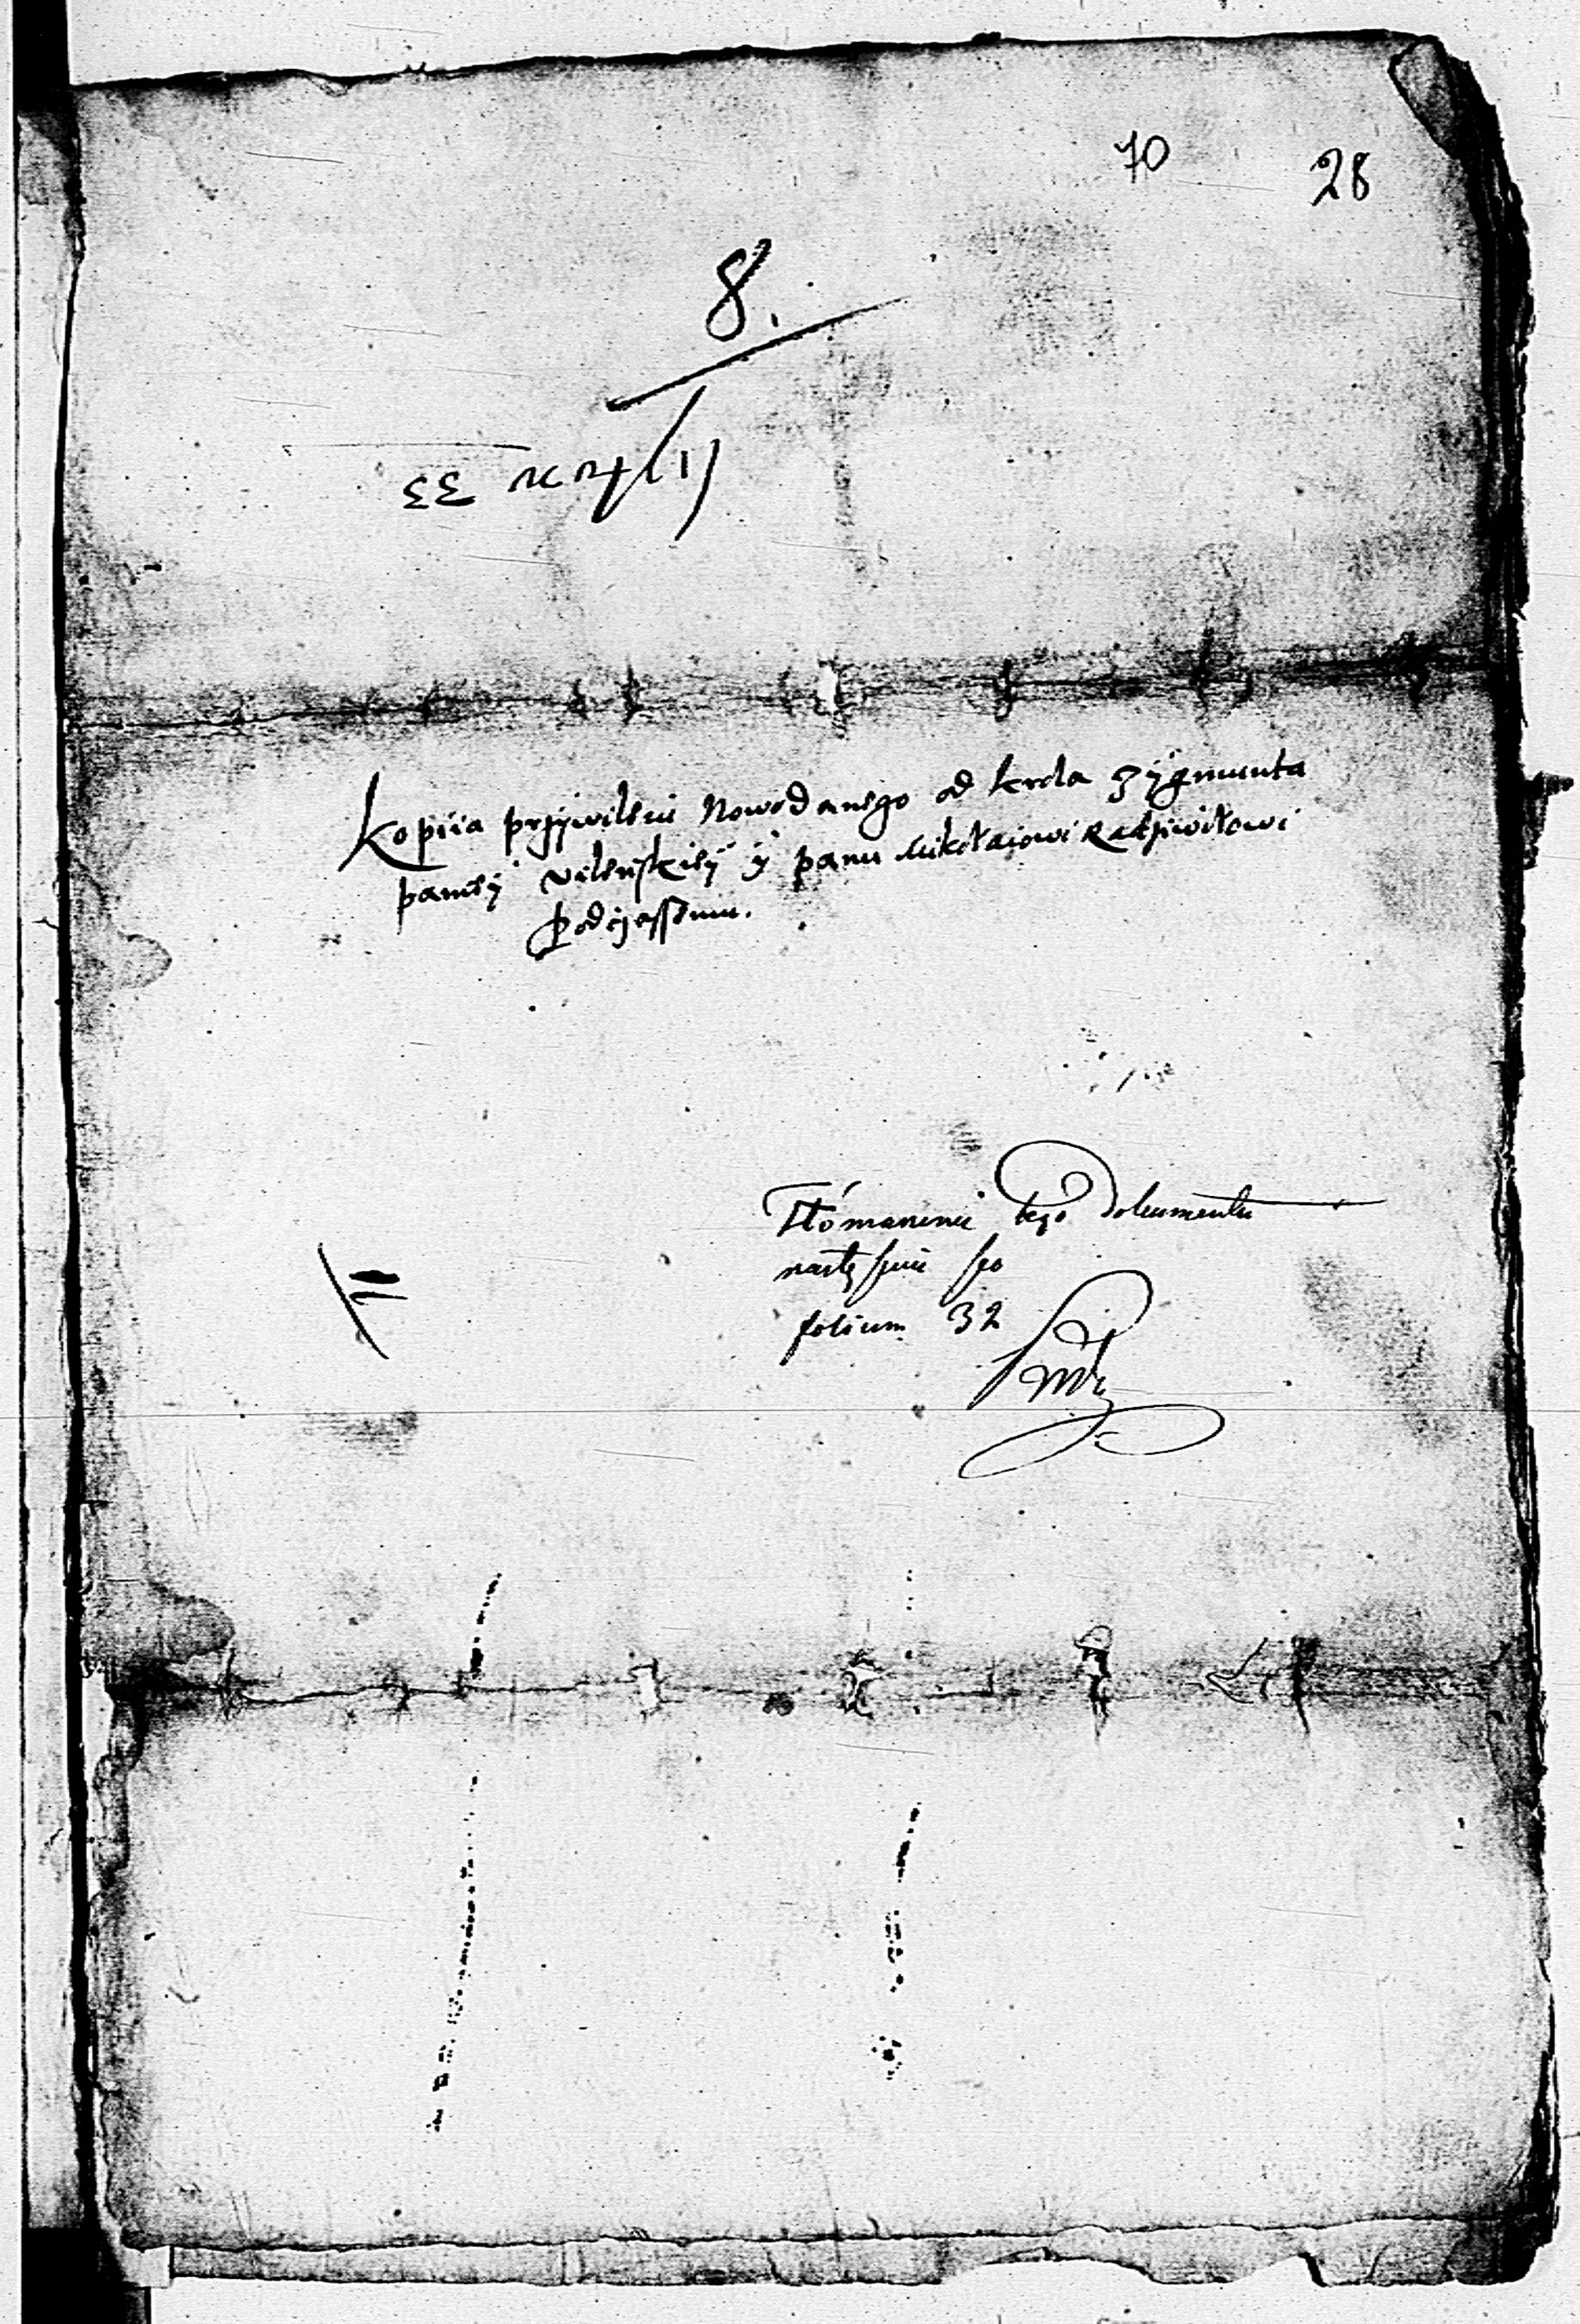 70 28
8.
33
Kopiia przÿwileiu Nowodanego od krola Zÿgmunta
paniej Vilenskieÿ ÿ panu Mikołaiowi Radziwiłowi
Podczassemu.
Tłómaczenie tego dokumentu
następuie po
folium 32